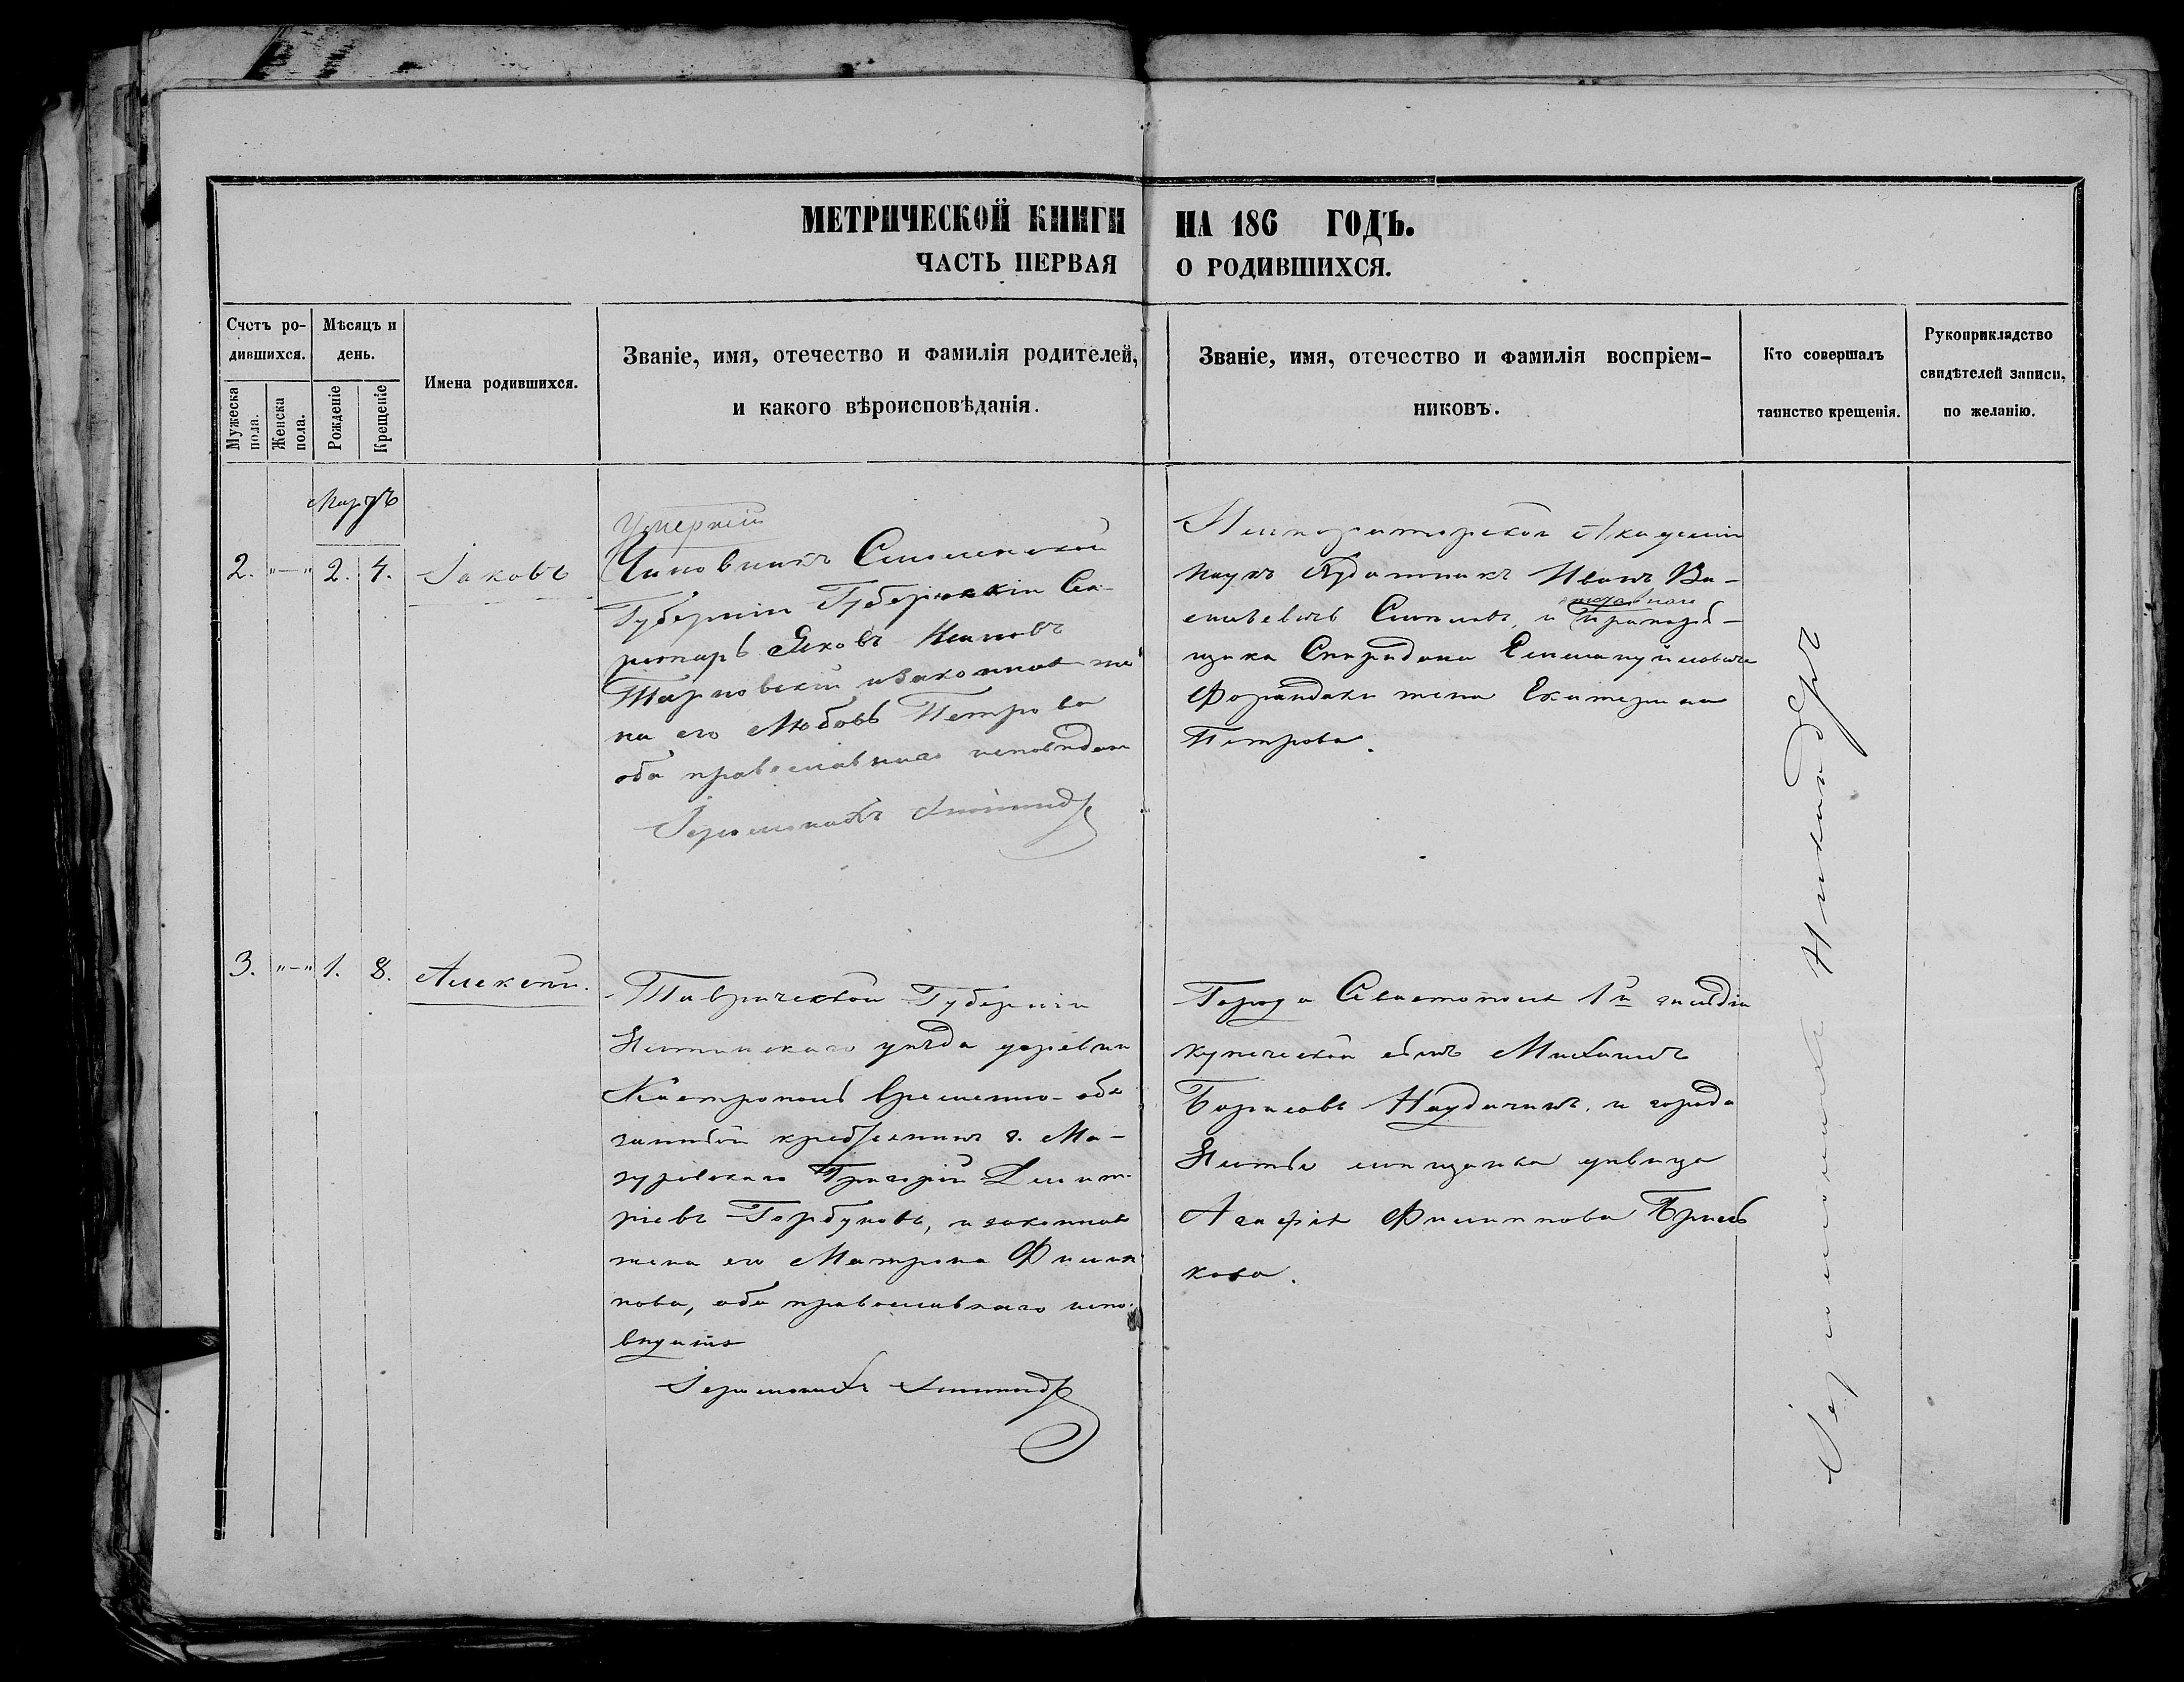 МЕТРИЧЕСКОЙ КНИГИ НА 186 ГОДЪ.
ЧАСТЬ ПЕРВАЯ О РОДИВШИХСЯ.
Счетъ ро-
дившихся.
Мужеска
пола.
Женска
пола.
Мѣсяцъ и
день.
Рожденіе
Крещеніе
Имена родившихся.
Званіе, имя, отечество и фамилія родителей,
и какого вѣроисповѣданія.
Званіе, имя, отечество и фамилія воспріем-
никовъ.
Кто совершалъ
таинство крещенія.
Рукоприкладство
свидѣтелей записи,
по желанію.
Мартъ
2. "—" 2. 4. Іаковъ
Умершій
Чиновникъ Смоленской
Губерніи Губернскій Сек-
ретарь Яковъ Ивановъ
Тарновскій и законная же-
на его Любовь Петрова
оба православнаго исповѣдан
Іеромонахъ
Императорской Академіи
Наукъ Художникъ Иванъ Ва-
сильевичъ и отставнаго Прапор-
щика Спиридона Еммануиловича
жена Екатерина
Петрова.
3. "—" 1. 8. Алексѣй.
Таврической Губерніи
Ялтинскаго уѣзда деревни
Кастрополь временно-обя
занный крестьянинъ г. Ма-
зуревскаго Григорій Димит-
ріевъ Горбуновъ, и законная
жена его Матрона Филип
пова, оба православнаго испо-
вѣданія
Іеромонахъ
Города Севастополя 1й гильдіи
купеческій сынъ Михаилъ
Борисовъ и города
Ялты мѣщанка дѣвица
Агафія Филиппова
кова.
Іеромонахъ Никандръ